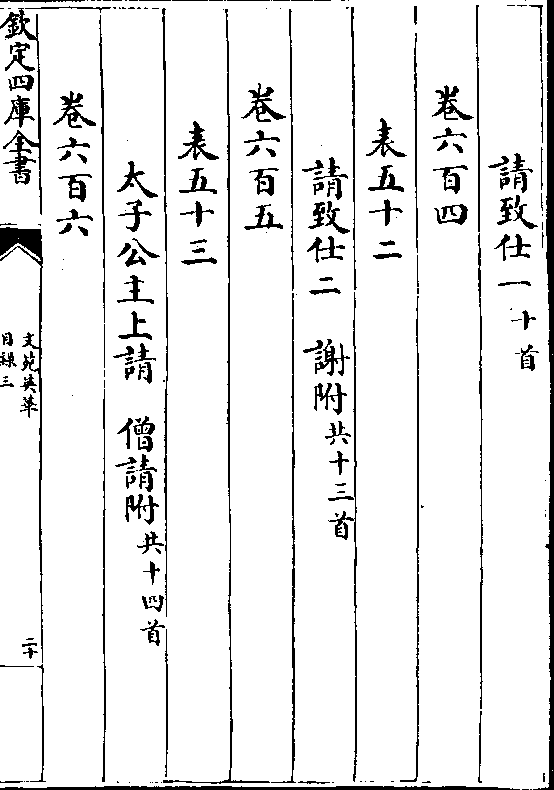 請致仕一十首
卷六百四
表五十二
請致仕二　謝附共十三首
卷六百五
表五十三
太子公主上請　僧請附共十四首
卷六百六
欽定四庫全書
文苑英華
目錄三
二十